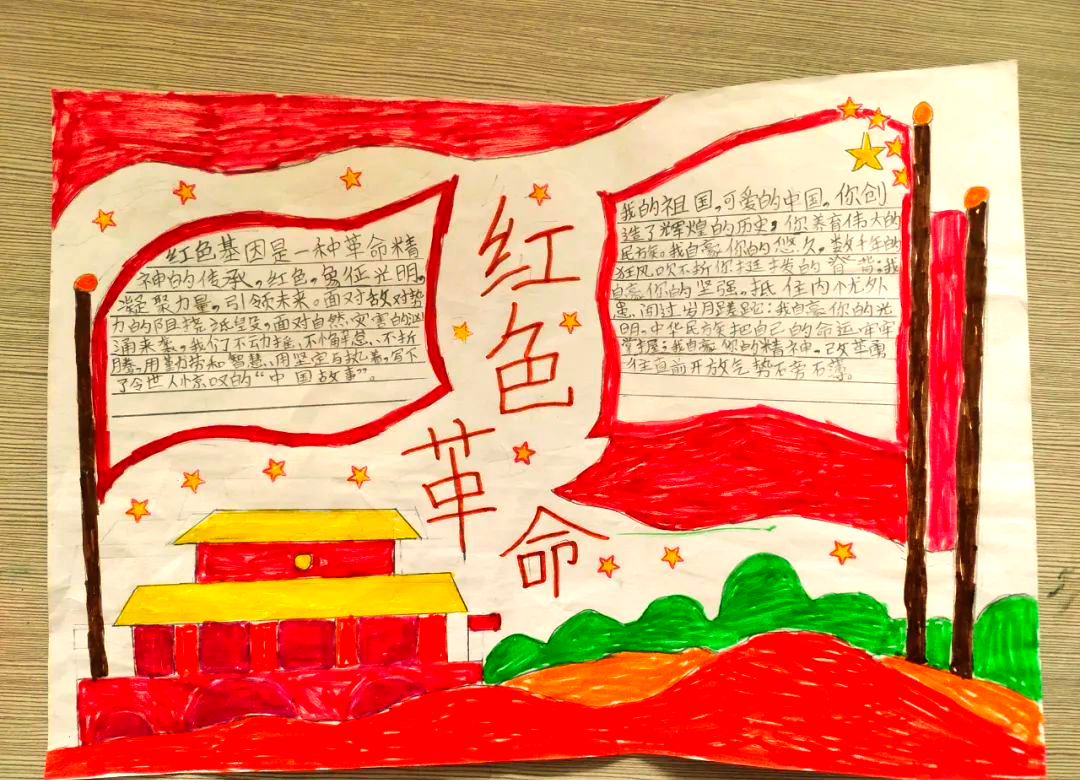 红色革命
红色基因是一种革命精
神的传承。红色，象征光明，
凝聚力量，引领未来。面对敌对势
力的阻挠诋毁，面对自然灾害的汹
涌来袭。我们不动摇、不懈怠、不折
腾，用勤劳和智慧、用坚定与执着，写下
了令世人惊叹的“中国故事”。
我的祖国，可爱的中国，你创
造了辉煌的历史，你养育伟大的
民族。我自豪你的悠久，数千年的
狂风吹不折你挺拔的脊背；我
自豪你的坚强。抵住内忧外
患，闯过岁月蹉跎；我自豪你的光
明，中华民族把自己的命运牢牢
掌握；我自豪你的精神，改革勇
往直前开放气势磅礴。